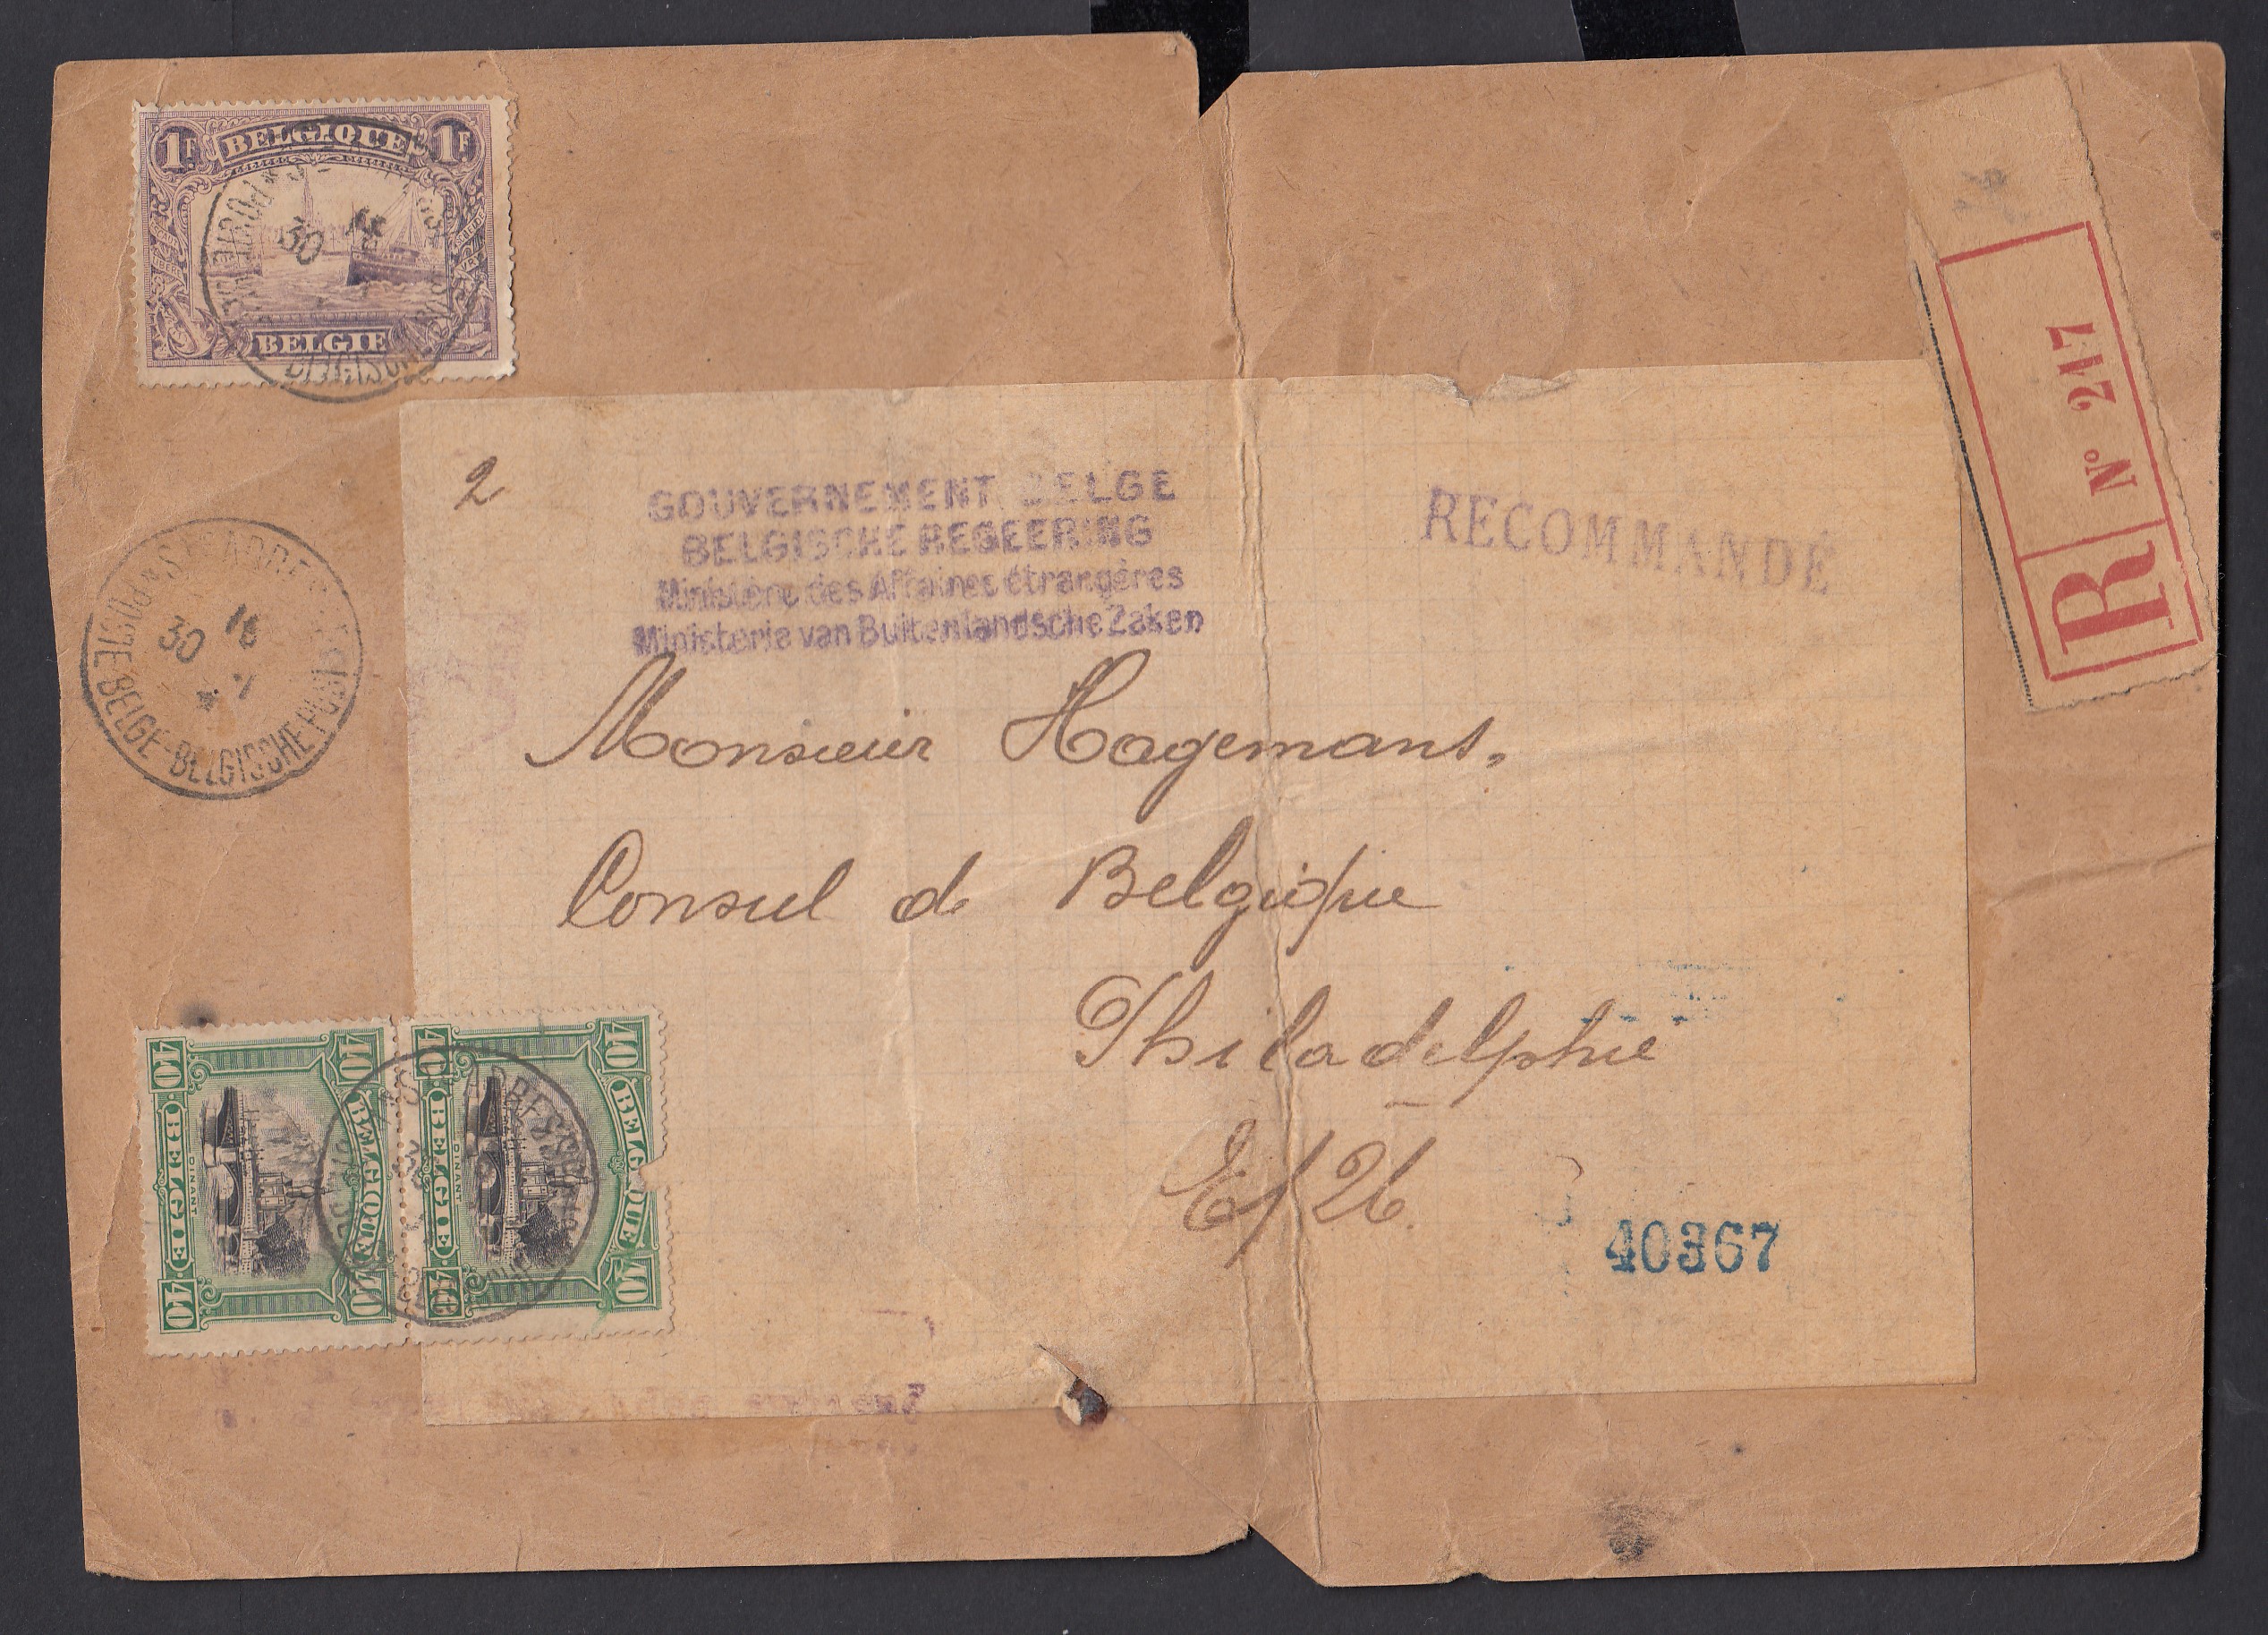 1F BELGIQUE 1F
BELGIE
30
2
GOUVERNEMENT BELGE
BELGISCHE REGEERING
Ministère des Affaires étrangères
Ministerie van Buitenlandsche Zaken
RECOMMANDÉ
R Nº 217
30 16
POSTE BELGE-BELGISCHE POST
Monsieur Hagemans,
Consul de Belgique
Philadelphie
E/U.
40367
40 BELGIQUE 40
DINANT
40 BELGIE 40
40 BELGIQUE 40
DINANT
40 BELGIE 40